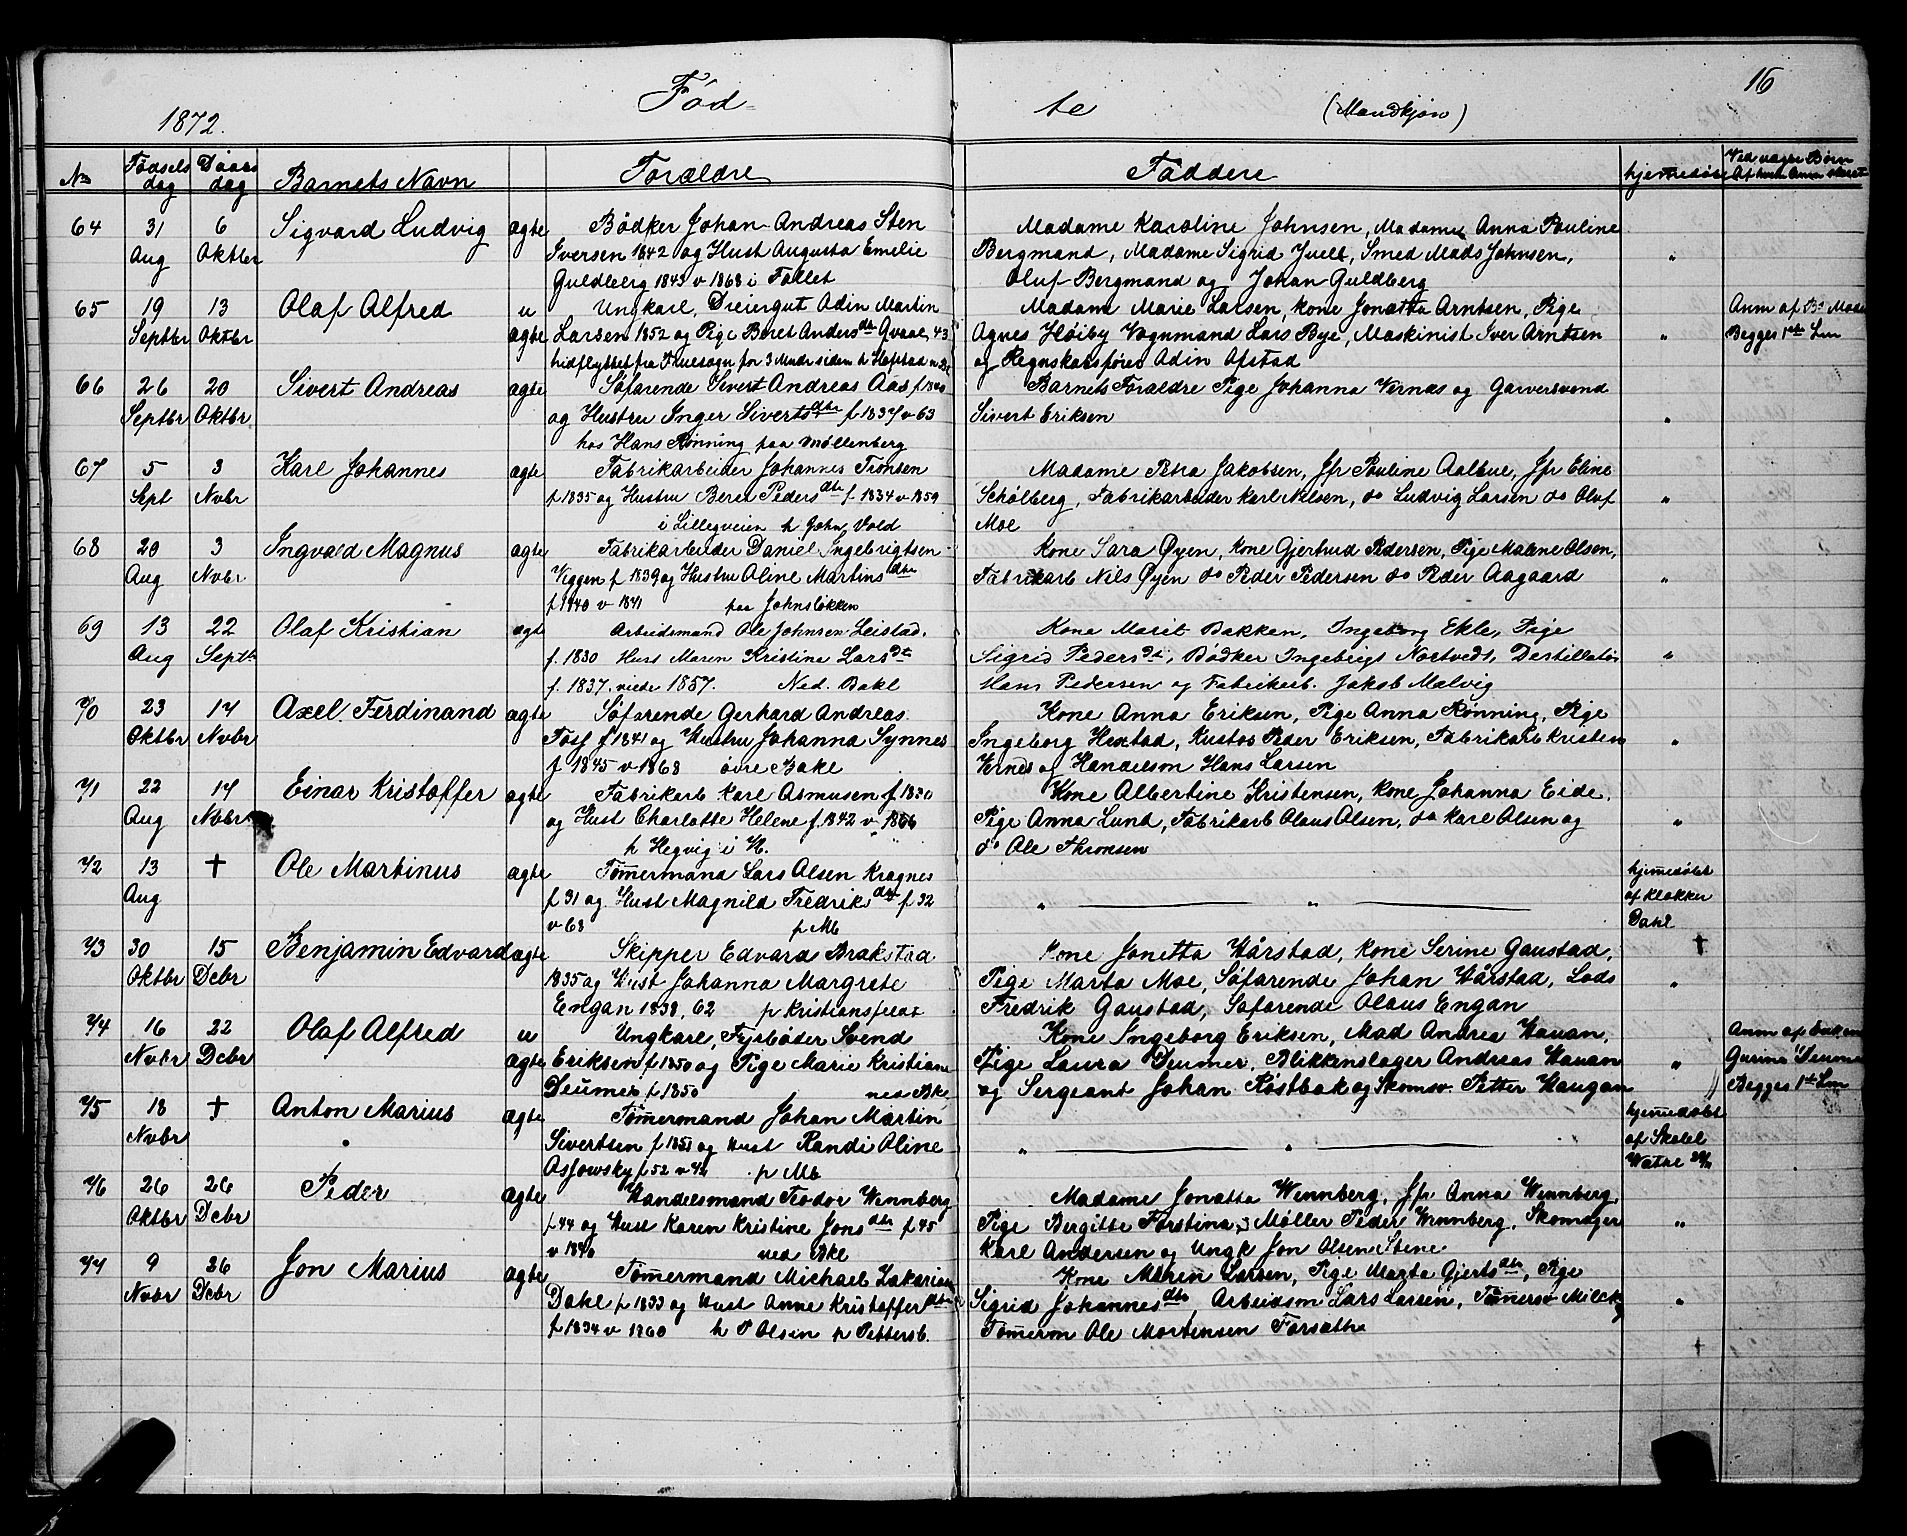 16
1872. Fødte (Mandkjøn)
No Fødsels dag Daabs dag Barnets Navn Forældre Faddere hjemmedøbt Ved uægte Børn
64 31 Aug 6 Oktbr Sigvard Ludvig ægte Bødker Johan Andreas Sten
Iversen 1842 og Hust Augusta Emelie
Guldberg 1843 v 1868 i Fallet
Madame Karoline Johnsen, Madame Anna Pauline
Bergmand, Madame Sigrid Juell, Smed Mads Johnsen,
Oluf Bergmand og Johan Guldberg
65 19 Septbr 13 Oktbr Olaf Alfred uægte Ungkarl, Dreiergut Adin Martin
Larsen 1852 og Pige Beret Andersdtr Qvaal, 43
hidflyttet fra Fluesogn for 3 Mndr siden h Hofstad
Madam Marie Larsen, kone Jonatta Arntsen, Pige
Agnes Høiby Vognmand Lars Bye, Maskinist Iver Arntsen
og Regnskabsfører Adin Opstad
Anm af
Begges 1ste Lm
66 26 Septbr 20 Oktbr Sivert Andreas ægte Søfarende Sivert Andreas Aas f 1840
og Hustru Inger Sivertsdtr f 1837 v 63
hos Hans Rønning paa Møllenberg
Barnets Forældre Pige Johanna Vernæs og Garversvend
Sivert Eriksen
67 5 Sept 3 Nvbr Karl Johannes ægte Fabrikarbeider Johannes Tronsen
f 1835 og Hustru Berit Pedersdtr f. 1834 v 1859
i Lillegveien h John Vold
Madame Petra Jakobsen, Jfr Pauline Aalbue, Jfr Eline
Schølberg, Fabrikarbeider Karl Nilsen, do Ludvig Larsen do Oluf
Moe
68 20 Aug 3 Nvbr Ingvald Magnus ægte Fabrikarbeider Daniel Ingebrigtsen
Viggen f 1839 og Hustru Oline Martinsdtr
f 1840 v 1841 paa Johnsløkken
Kone Sara Øyen, Kone Gjertrud Pedersen, Pige Malene Olsen,
Fabrikarb Nils Øyen do Peder Pedersen do Peder Aagaard
69 13 Aug 22 Septb Olaf Kristian ægte Arbeidsmand Ole Johnsen Leistad,
f. 1830 Hust Maren Kristina Larsdt
f. 1837. viede 1857. Ned. Bakl
Kone Marit Bakken, Ingeborg Ekle, Pige
Sigrid Pedersdt, Bødker Ingebrigt Nortvedt, Destillatør
Hans Pedersen og Fabrikarb. Jakob Malvig
70 23 Oktbr 17 Nvbr Axel Ferdinand ægte Søfarende Gerhard Andreas
Foss f 1841 og Hustru Johanna Synnes
f 1845 v 1868 øvre Bakl
Kone Anna Eriksen, Pige Anna Rønning, Pige
Ingeborg Hustad, Kustos Peder Eriksen, Fabrikarb Kristen
Vernes og Handelsm Hans Larsen
71 22 Aug 17 Nvbr Einar Kristoffer ægte Fabrikarb Karl Asmusen f. 1830
og Hust Charlotte Helene f. 1842 v 1866
h Hegvig i H.
Kone Albertine Kristensen, kone Johanna Eide,
Pige Anna Lund, Fabrikarb Olaus Olsen, do Karl Olsen og
do Ole Thronsen
72 13 Aug † Ole Martinus ægte Tømermand Lars Olsen Kragnes
f 31 og Hust Magnild Fredriksdtr f 32
v 63 p Mb
hjemmedøbt
af Klokker
Dahl
73 30 Oktbr 15 Dcbr Benjamin Edvard ægte Skipper Edvard Brakstad
1835 og Hust Johanna Margrete
Engan 1838, 62 p Kristiansfeldt
Kone Jonetta Hårstad, kone Serine Gaustad,
Pige Marta Moe, Søfarende Johan Hårstad, Lods
Fredrik Gaustad, Søfarende Olaus Engan
†
74 16 Nvbr 22 Dcbr Olaf Alfred uægte Ungkarl, Fyrbøder Svend
Eriksen f 1850 og Pige Marie Kristiane
Deumer f 1850 ned Bk.
Kone Ingeborg Eriksen, Mad Andrea Hauan,
Pige Laura Deumer, Blikkenslager Andreas Hauan
og Sergeant Johan Rostbak og Skomsv. Petter Haugan
Anm af Enken
Gurina Deumer
Begges 1st Lm
75 18 Nvbr † Anton Marius ægte Tømermand Johan Martin
Sivertsen f 1851 og Hust Randi Oline
Asjowsky f 52 v 72 p Mb
hjemmedøbt
af Skolel
Wæhre
76 26 Oktbr 26 Dcbr Peder ægte Handelsmand Teodor Wennberg
f 44 og Hust Karen Kristine Jonsdtr f 45
v 1870 ned Bkl
Madame Jonatta Wennberg, Jfr Anna Wennberg,
Pige Bergitte Forstina, Møller Peder Wennberg, Skomager
Karl Andersen og Ungk Jon Olsen Stene
77 9 Nvbr 26 Dcbr Jon Marius ægte Tømermand Michael Zakarias
Dahl f 1833 og Hust Anne Kristofferdtr
f 1834 v 1860 h P Olsen p Pettersb.
Kone Maren Larsen, Pige Marta Gjertsdtr, Pige
Sigrid Johannesdtr, Arbeidsm Lars Larsen, Tømersv Milch
Tømerm Ole Mortensen Forsæth
†